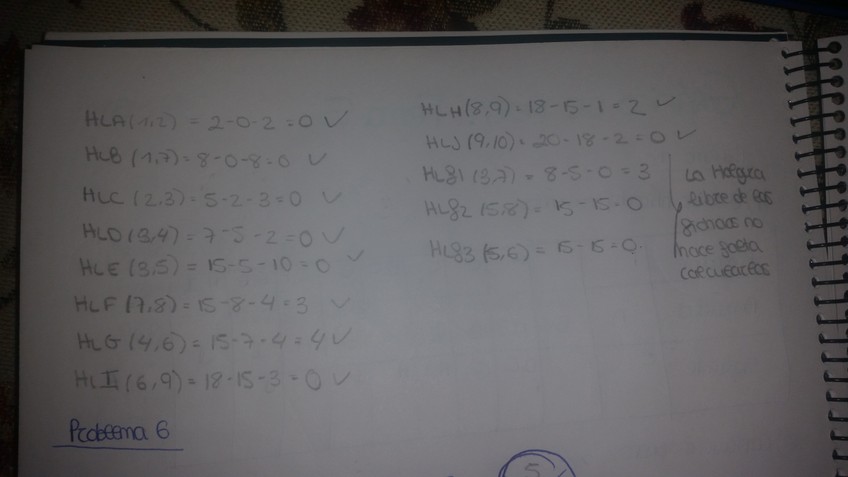 HLA (1,2) = 2-0-2=0 ✓
HLB (1,7)=8-0-8=0 ✓
HLC (2,3)=5-2-3=0 ✓
HLD (3,4)=7-5-2=0 ✓
HLE (3,5)=15-5-10=0 ✓
HLF (7,8)=15-8-4=3 ✓
HLG (4,6)=15-7-4=4 ✓
HLI (6,9)=18-15-3=0 ✓
HLH (8,9)=18-15-1=2 ✓
HLJ (9,10)=20-18-2=0 ✓
HLf1 (3,7)=8-5-0=3
HLf2 (5,8)=15-15=0
HLf3 (5,6)=15-15=0.
La Holgura
libre de las
fichas no
hace falta
calcularlas
Problema 6
5